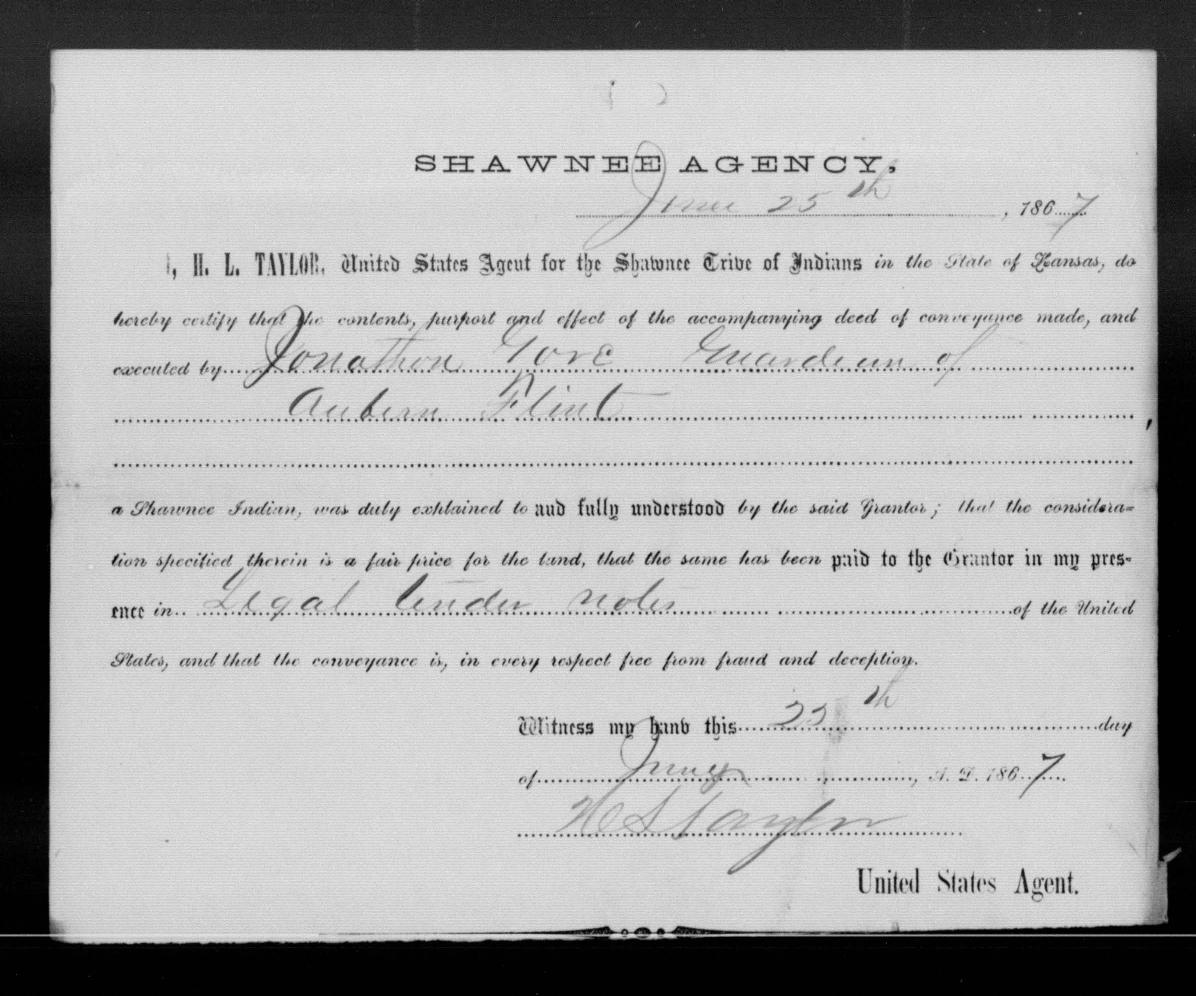 SHAWNEE AGENCY,
June 25th, 1867
I, H. L. TAYLOR, United States Agent for the Shawnee Tribe of Indians in the State of Kansas, do
hereby certify that the contents, purport and effect of the accompanying deed of conveyance made, and
executed by Jonathon Gore Guardian of
Auburn Flint
a Shawnee Indian, was duly explained to and fully understood by the said Grantor; that the considera=
tion specified therein is a fair price for the land, that the same has been paid to the Grantor in my pres-
ence in Legal tender notes of the United
States, and that the conveyance is, in every respect free from fraud and deception.
Witness my hand this 25th day
of June, A. D. 1867
H L Taylor
United States Agent.